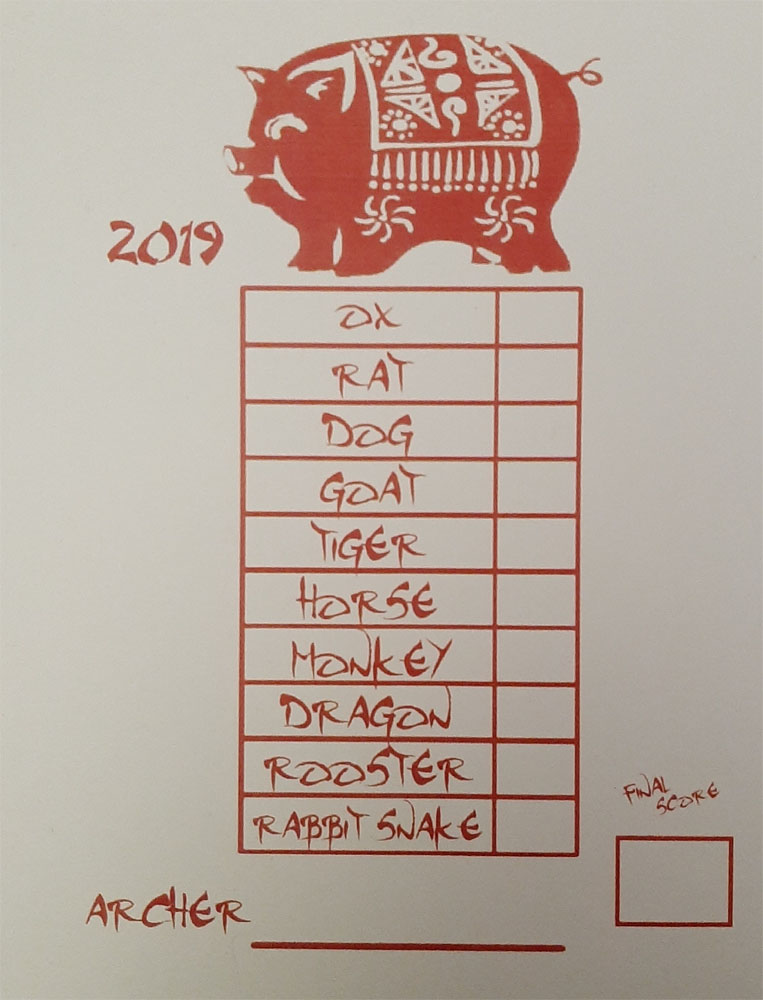 2019
OX
RAT
DOG
GOAT
TIGER
HORSE
MONKEY
DRAGON
ROOSTER
RABBIT SNAKE
FINAL
SCORE
ARCHER